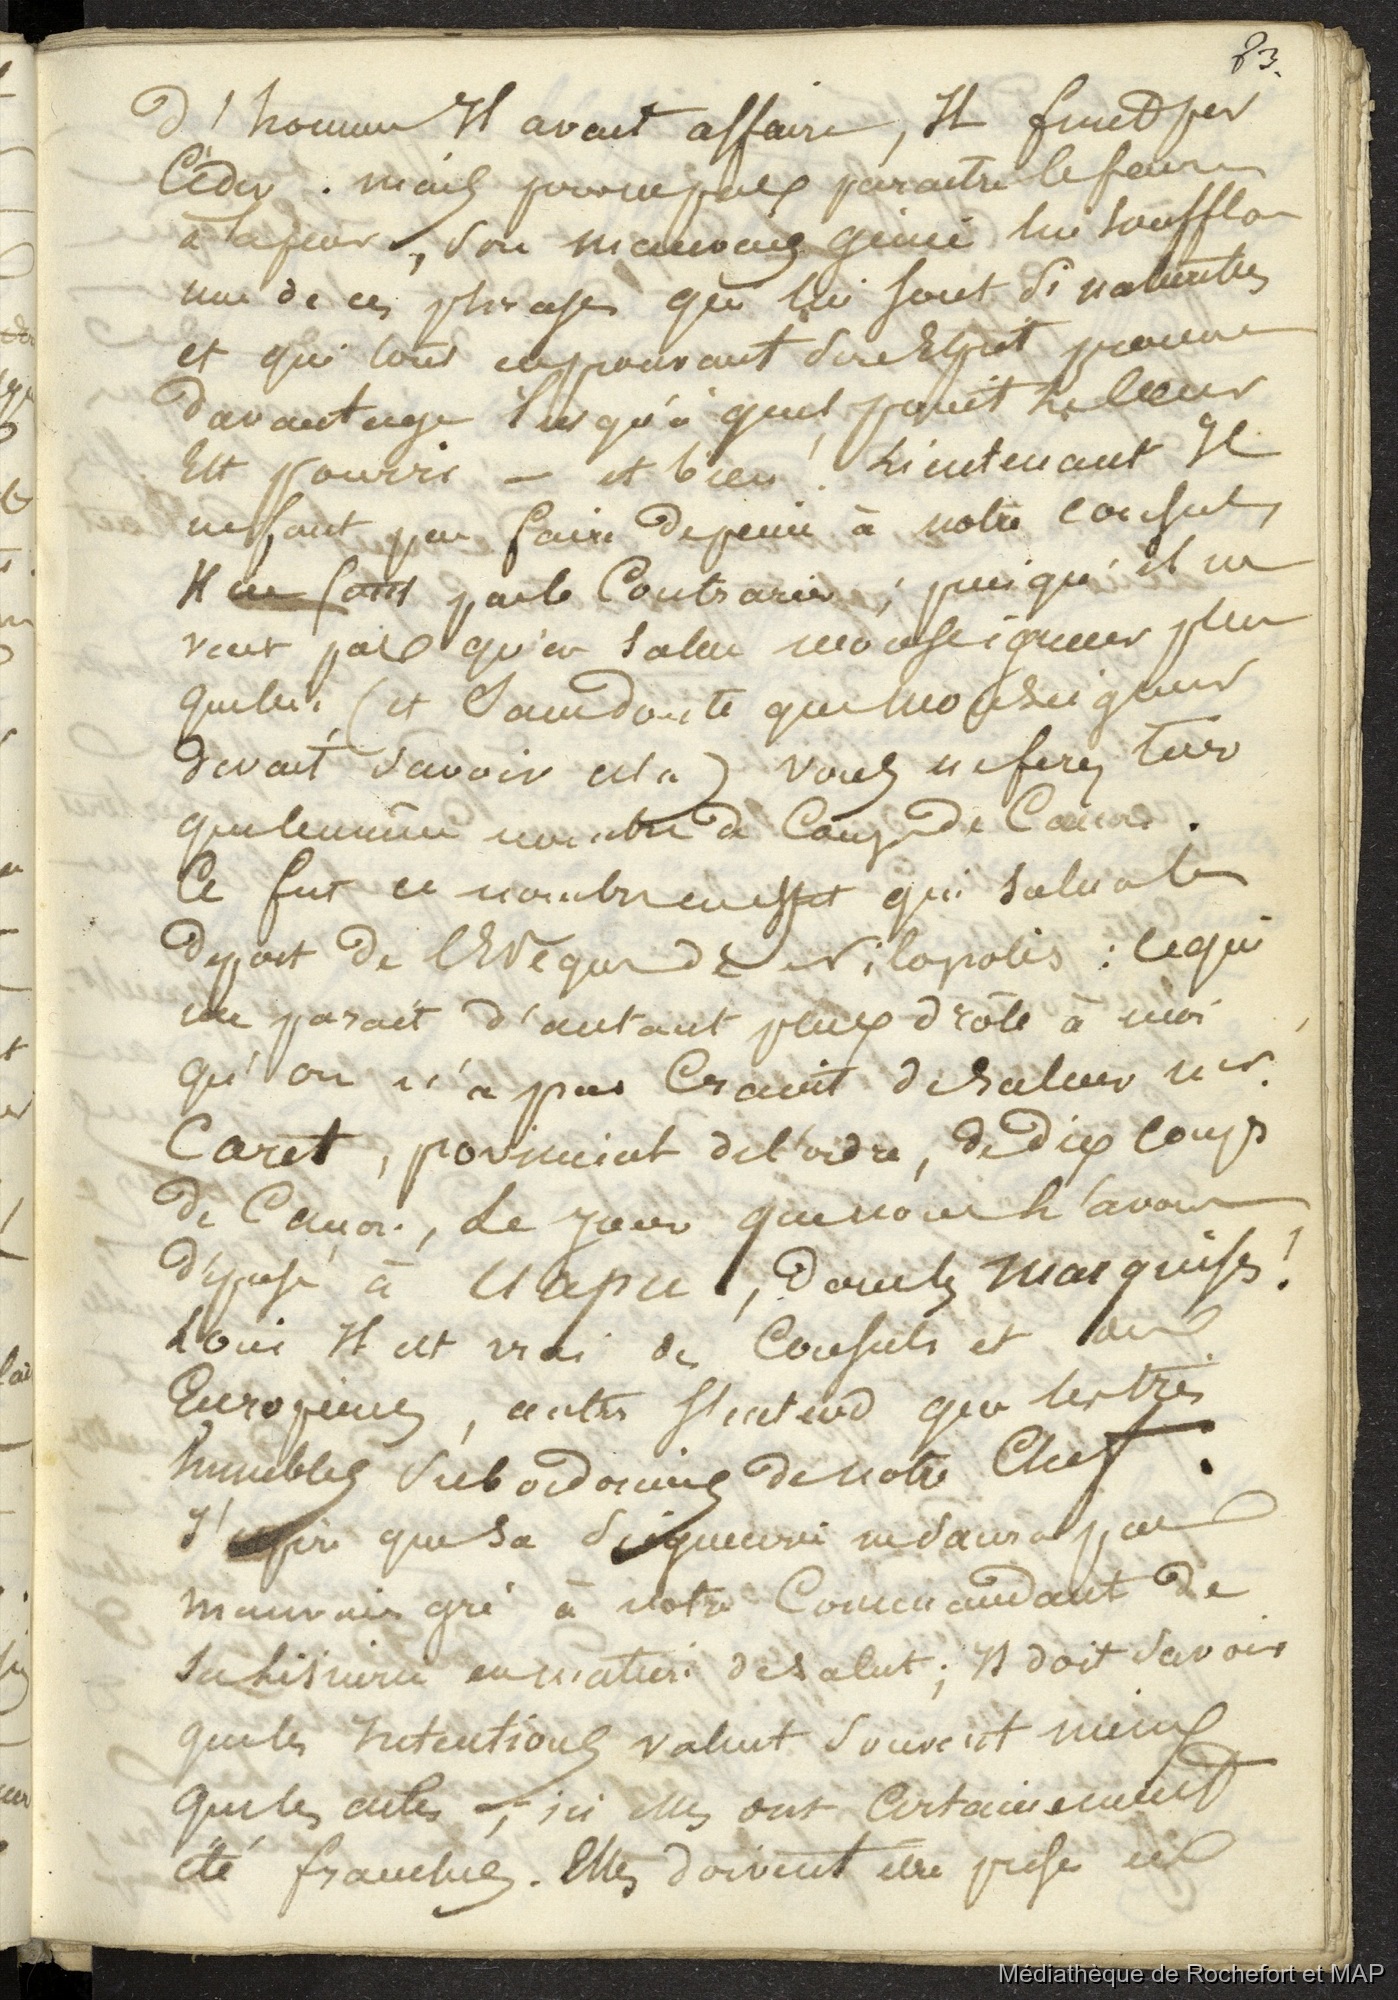 83.
d'homme Il avait affaire, Il finit par
Céder. mais pour ne pas paraitre le faire
à la peur, son mauvais génie lui souffla
une de ces phrases qui lui sont si naturelles
et qui tout en prouvant son Esprit prouve
davantage Jusqu'à quel point le Cœur
Est pourri — et bien! Lieutenant Il
ne faut pas faire de peine à notre consul,
Il ne faut pas le Contrarier; puisqu'il ne
veut pas qu'on salue monseigneur plus
que lui (et Sans doute que Monseigneur
devait savoir cela) vous ne ferez tirer
que le même nombre de Coups de Canon.
Ce fut ce nombre en effet qui salua le
depart de l'Evêque de Nilopolis: ce qui
me parait d'autant plus drôle à moi
qu'on n'a pas Craint de saluer mr.
Caret, provincial de l'ordre, de dix coups
de Canon, Le jour que nous l'avons
déposé à Uapu, dans les Marquises!
Loin Il est vrai des Consuls et des
Européens, autres s'entend que les très
humbles Subordonnés de notre Chef.
J'espère que sa Seigneurie ne saura pas
mauvais gré à notre Commandant de
sa lésinerie en matière de salut; Il doit savoir
que les Intentions valent souvent mieux
que les actes, ici elles ont Certainement
été franches. Elles doivent être prises en
Médiathèque de Rochefort et MAP